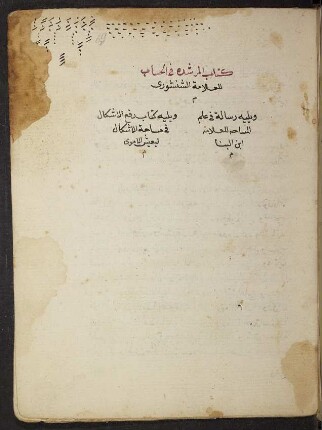 كتاب المرشده في الحساب
للعلامة الشنشوري
م
ويليه رسالة في علم
المساحه للعلامه
ابن البنا
م
ويليه كتاب رفع الاشكال
في مساحة الاشكال
ليعيش الاموي
م